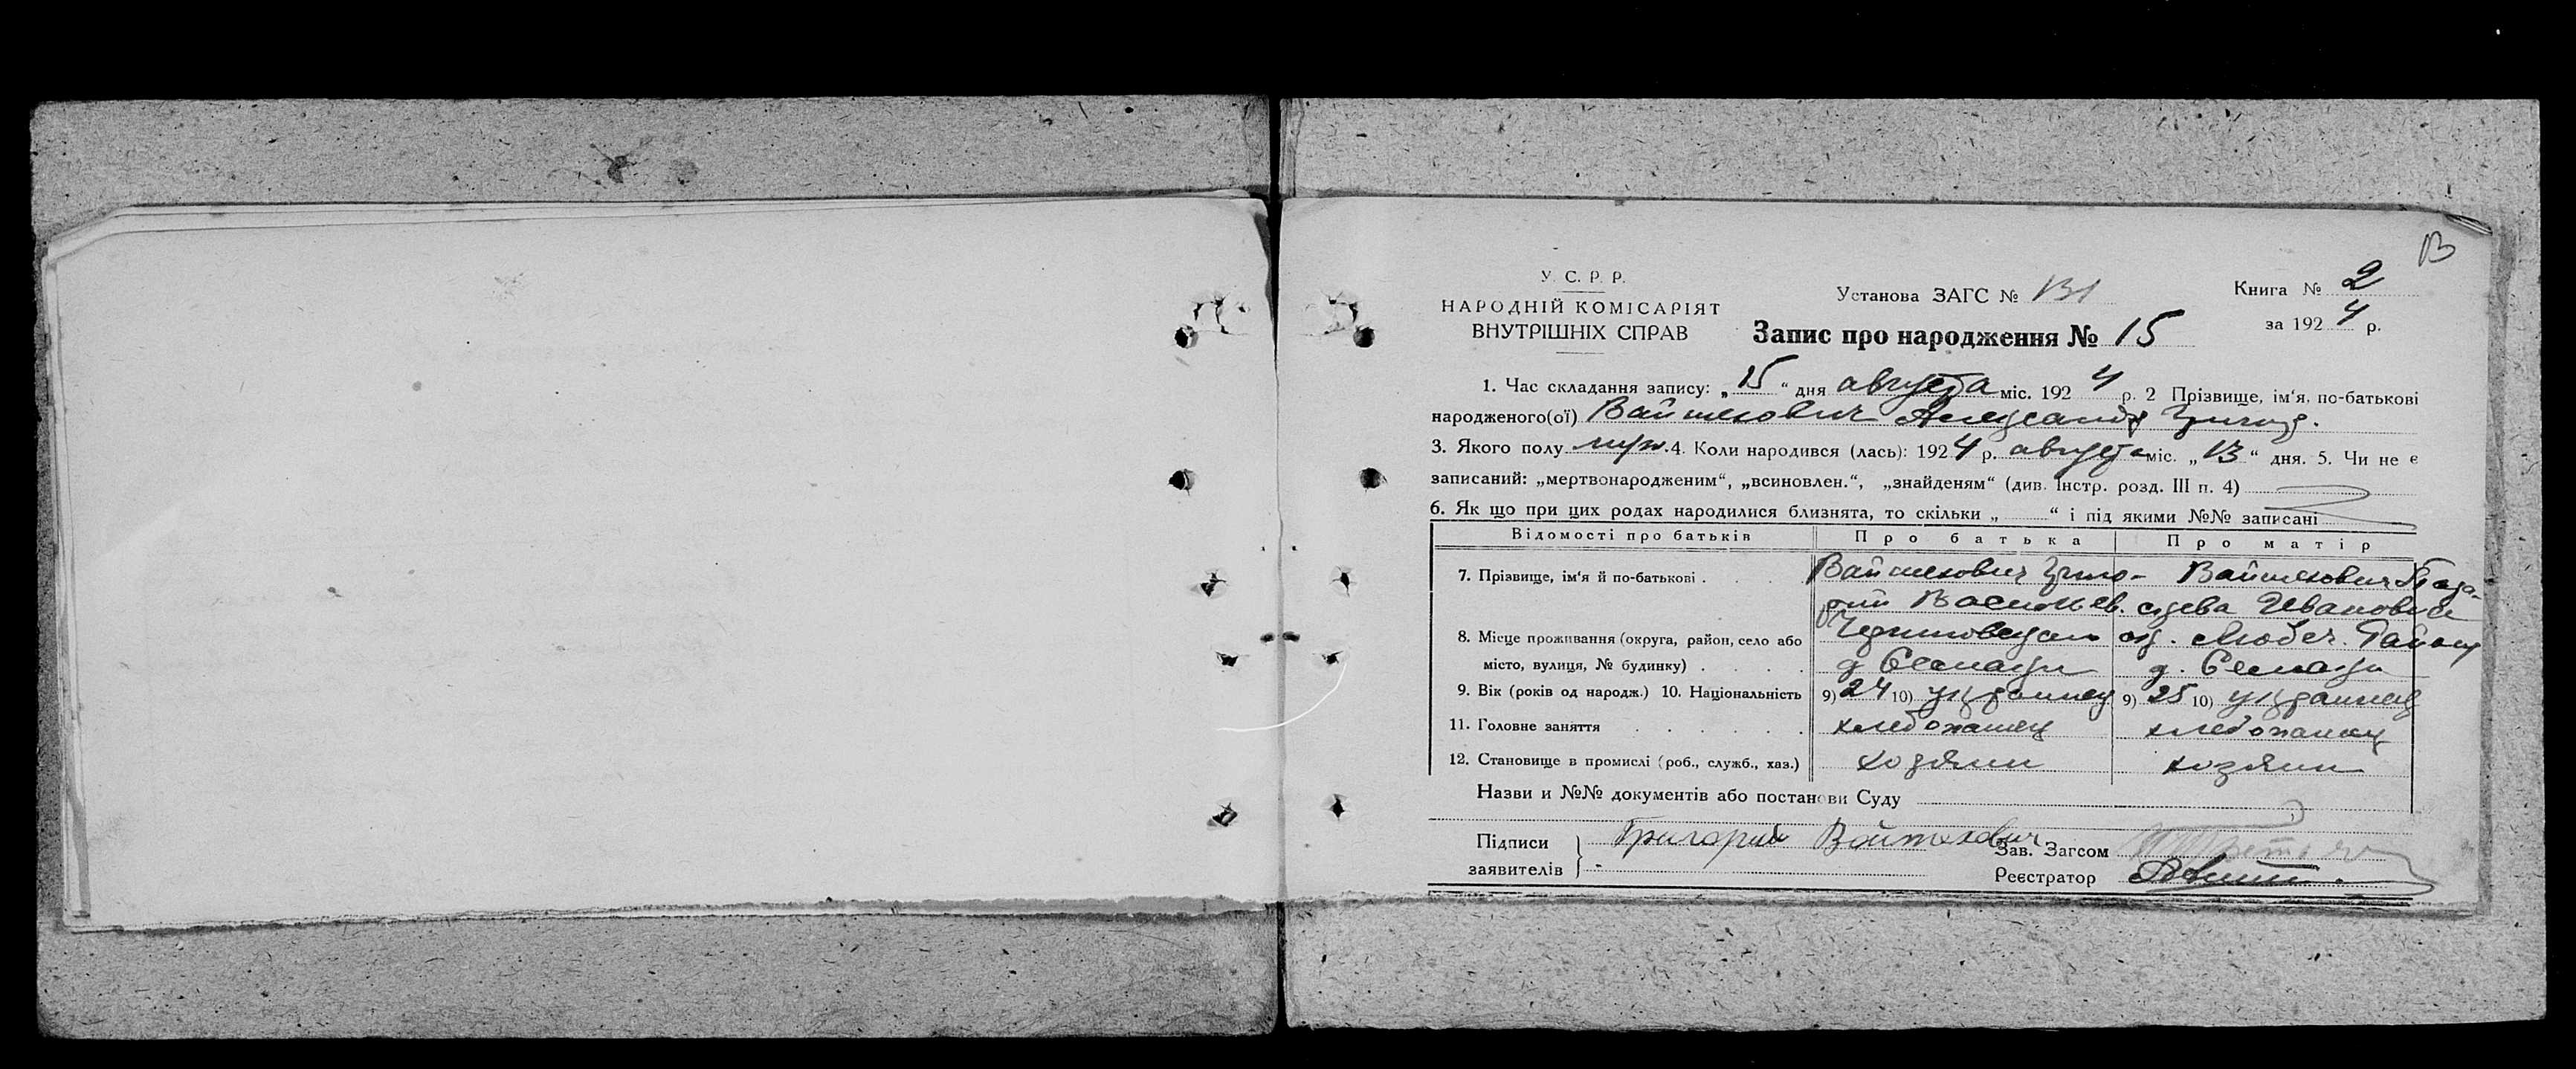 В
У. С. Р. Р.
НАРОДНІЙ КОМІСАРІЯТ
ВНУТРІШНІХ СПРАВ
Установа ЗАГС № 131
Книга № 2
за 1924 р.
Запис про народження № 15
1. Час складання запису: „15“ дня августа міс. 1924 р. 2 Прізвище, ім'я, по-батькові
народженого(ої) Вайтехович Александр Григор.
3. Якого полу муж. 4. Коли народився (лась): 1924 р. августа міс. „13“ дня. 5. Чи не є
записаний: „мертвонародженим“, „всиновлен.“, „знайденям“ (див. Інстр. розд. III п. 4)
6. Як що при цих родах народилися близнята, то скільки „ “ і під якими №№ записані
Відомості про батьків Про батька Про матір
7. Прізвище, ім'я й по-батькові . Вайтехович Григо- Вайтехович
рий Васильев. Ивановна
8. Місце проживання (округа, район, село або Черниговская ок. Любеч. Району
місто, вулиця, № будинку) . д д.
9. Вік (років од народж.) 10. Національність 9) 24 10) украинец 9) 25 10) украинец
11. Головне заняття хлебопашец хлебопашец
12. Становище в промислі (роб., служб., хаз.) хозяин хозяин
Назви и №№ документів або постанови Суду
Підписи Григорий Войтехович Зав. Загсом
заявителів Реєстратор